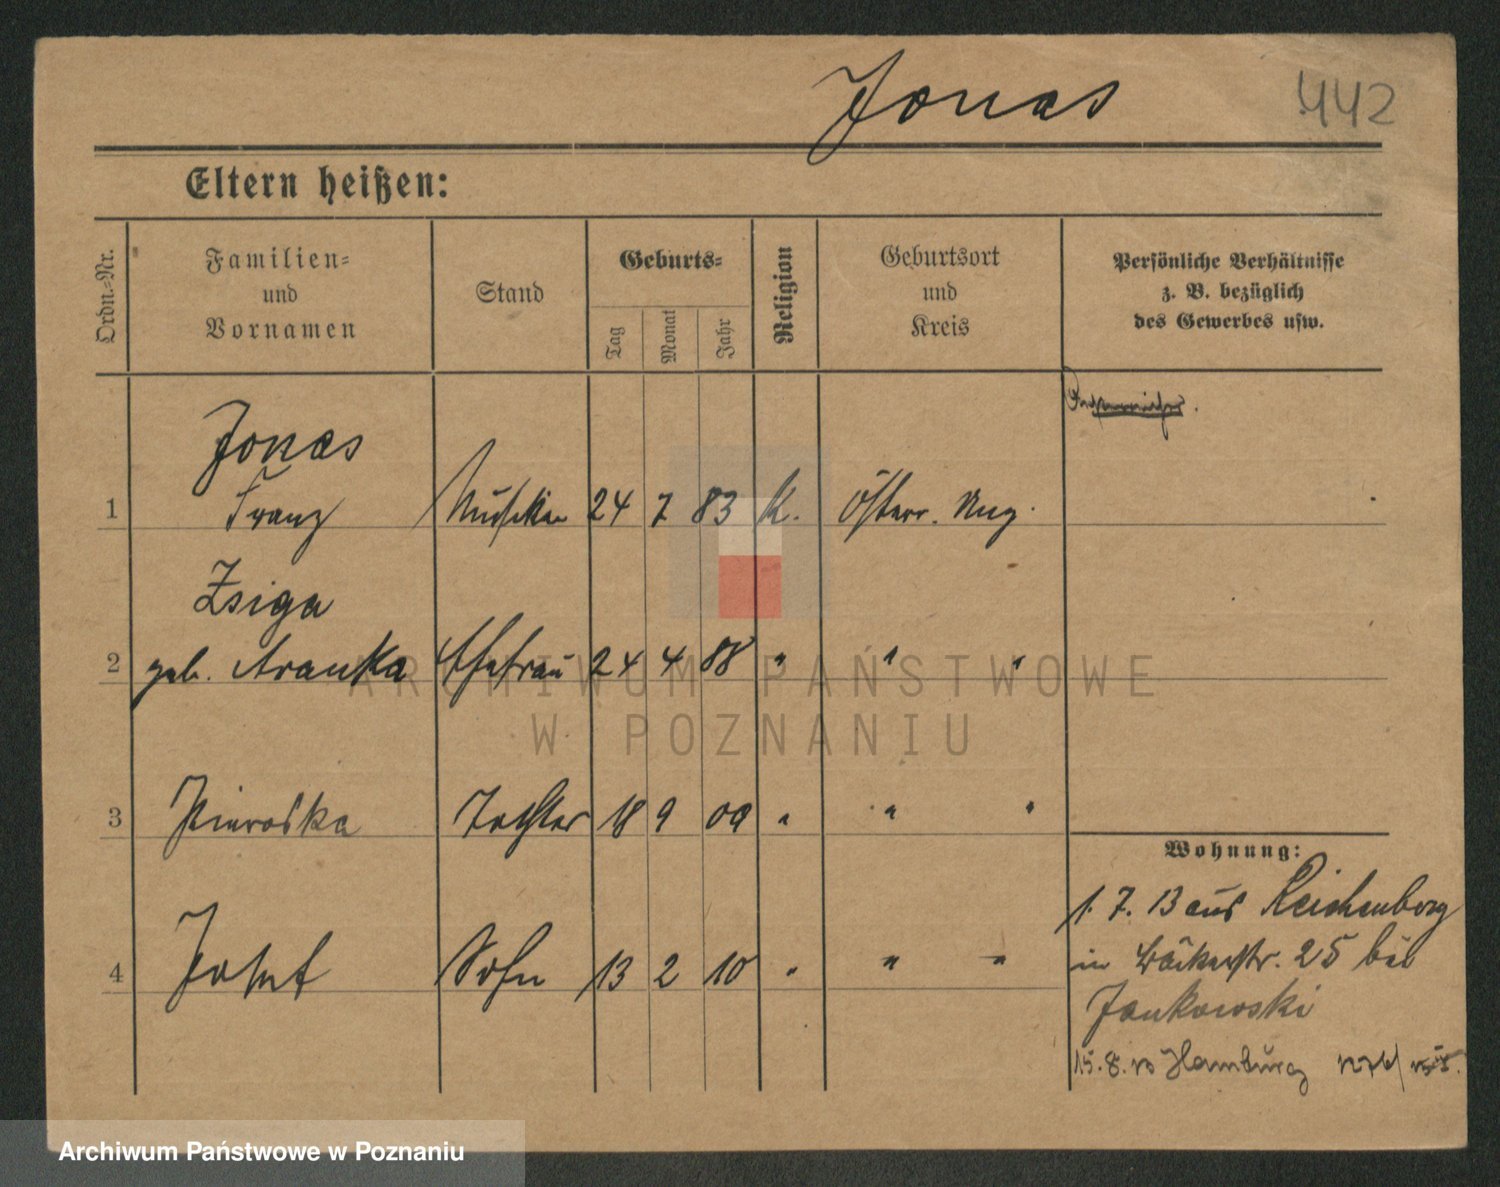 Jonas 442
Eltern heißen:
Ordn.-Nr.
Familien-
und
Vornamen
Stand
Geburts-
Tag
Monat
Jahr
Religion
Geburtsort
und
Kreis
Persönliche Verhältnisse
z. B. bezüglich
des Gewerbes usw.
Jonas
1 Franz Musiker 24 7 83 K. Österr. Ung.
Zsiga
2 geb. Aranka Ehefrau 24 4 88 " " "
3 Piroska Tochter 18 9 09 " " "
4 Josef Sohn 13 2 10 " " "
Wohnung:
1. 7. 13 aus Reichenberg
in Bäckerstr. 25 bei
Jankowski
15. 8. Hamburg
ARCHIWUM PAŃSTWOWE
W POZNANIU
Archiwum Państwowe w Poznaniu